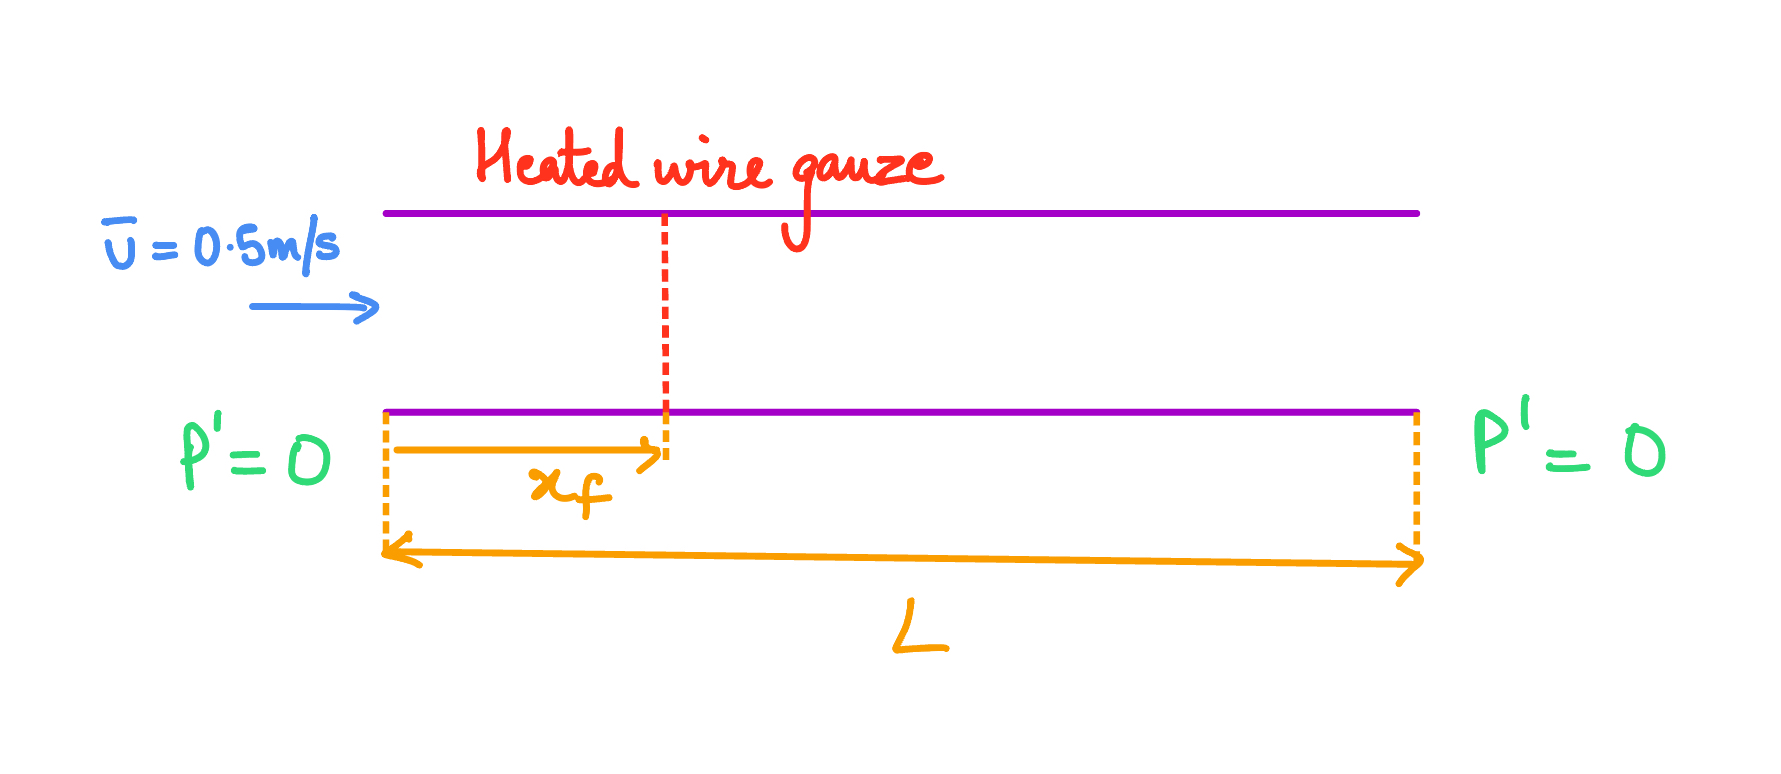 Heated wire gauze
Ū = 0.5m/s
P' = 0
P' = 0
x_f
L